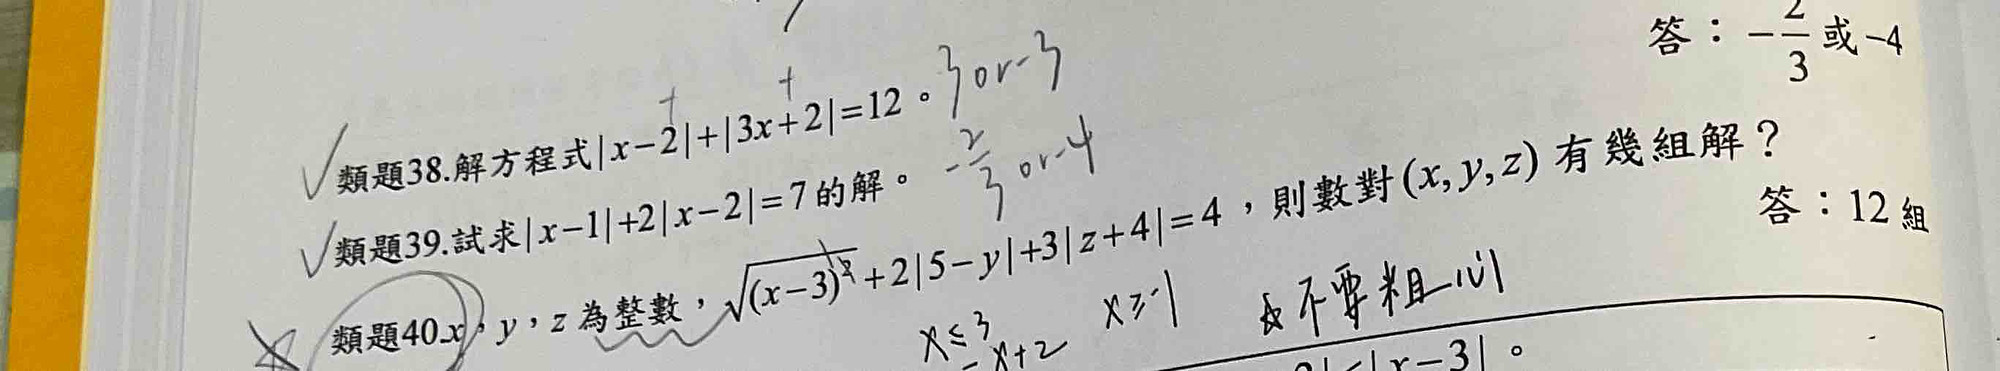 答：-2/3或-4
類題38.解方程式|x-2|+|3x+2|=12。 3 or -3
類題39.試求|x-1|+2|x-2|=7的解。 -2/3 or -4
類題40.x，y，z為整數，√(x-3)²+2|5-y|+3|z+4|=4，則數對(x,y,z)有幾組解？
答：12組
x≤3 x≥-1 不要粗心!
-x+2
|x-3|。